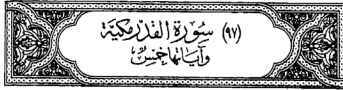 (٩٧) سُورَةُ الْقَدْرِ مَكِيَّة
وَآيَاتُهَا خَمْسٌ